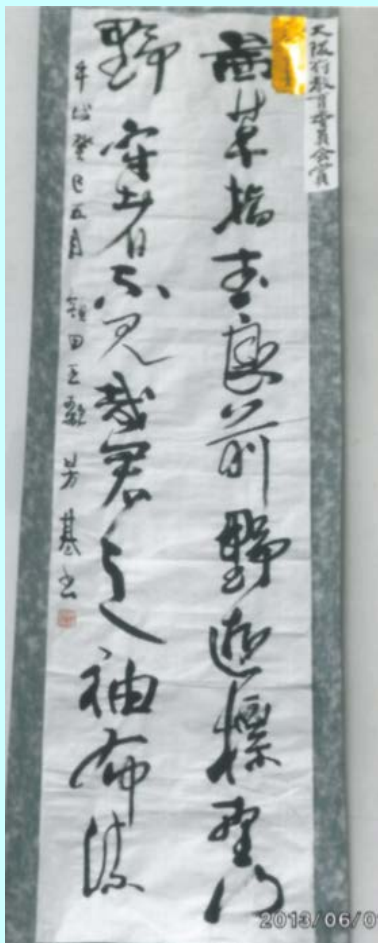 大阪府教育委員会賞
茜草指武良前野逝標野行
野守者不見哉君之袖布流
平成癸巳五月 額田王歌 芳基書
2013/06/0